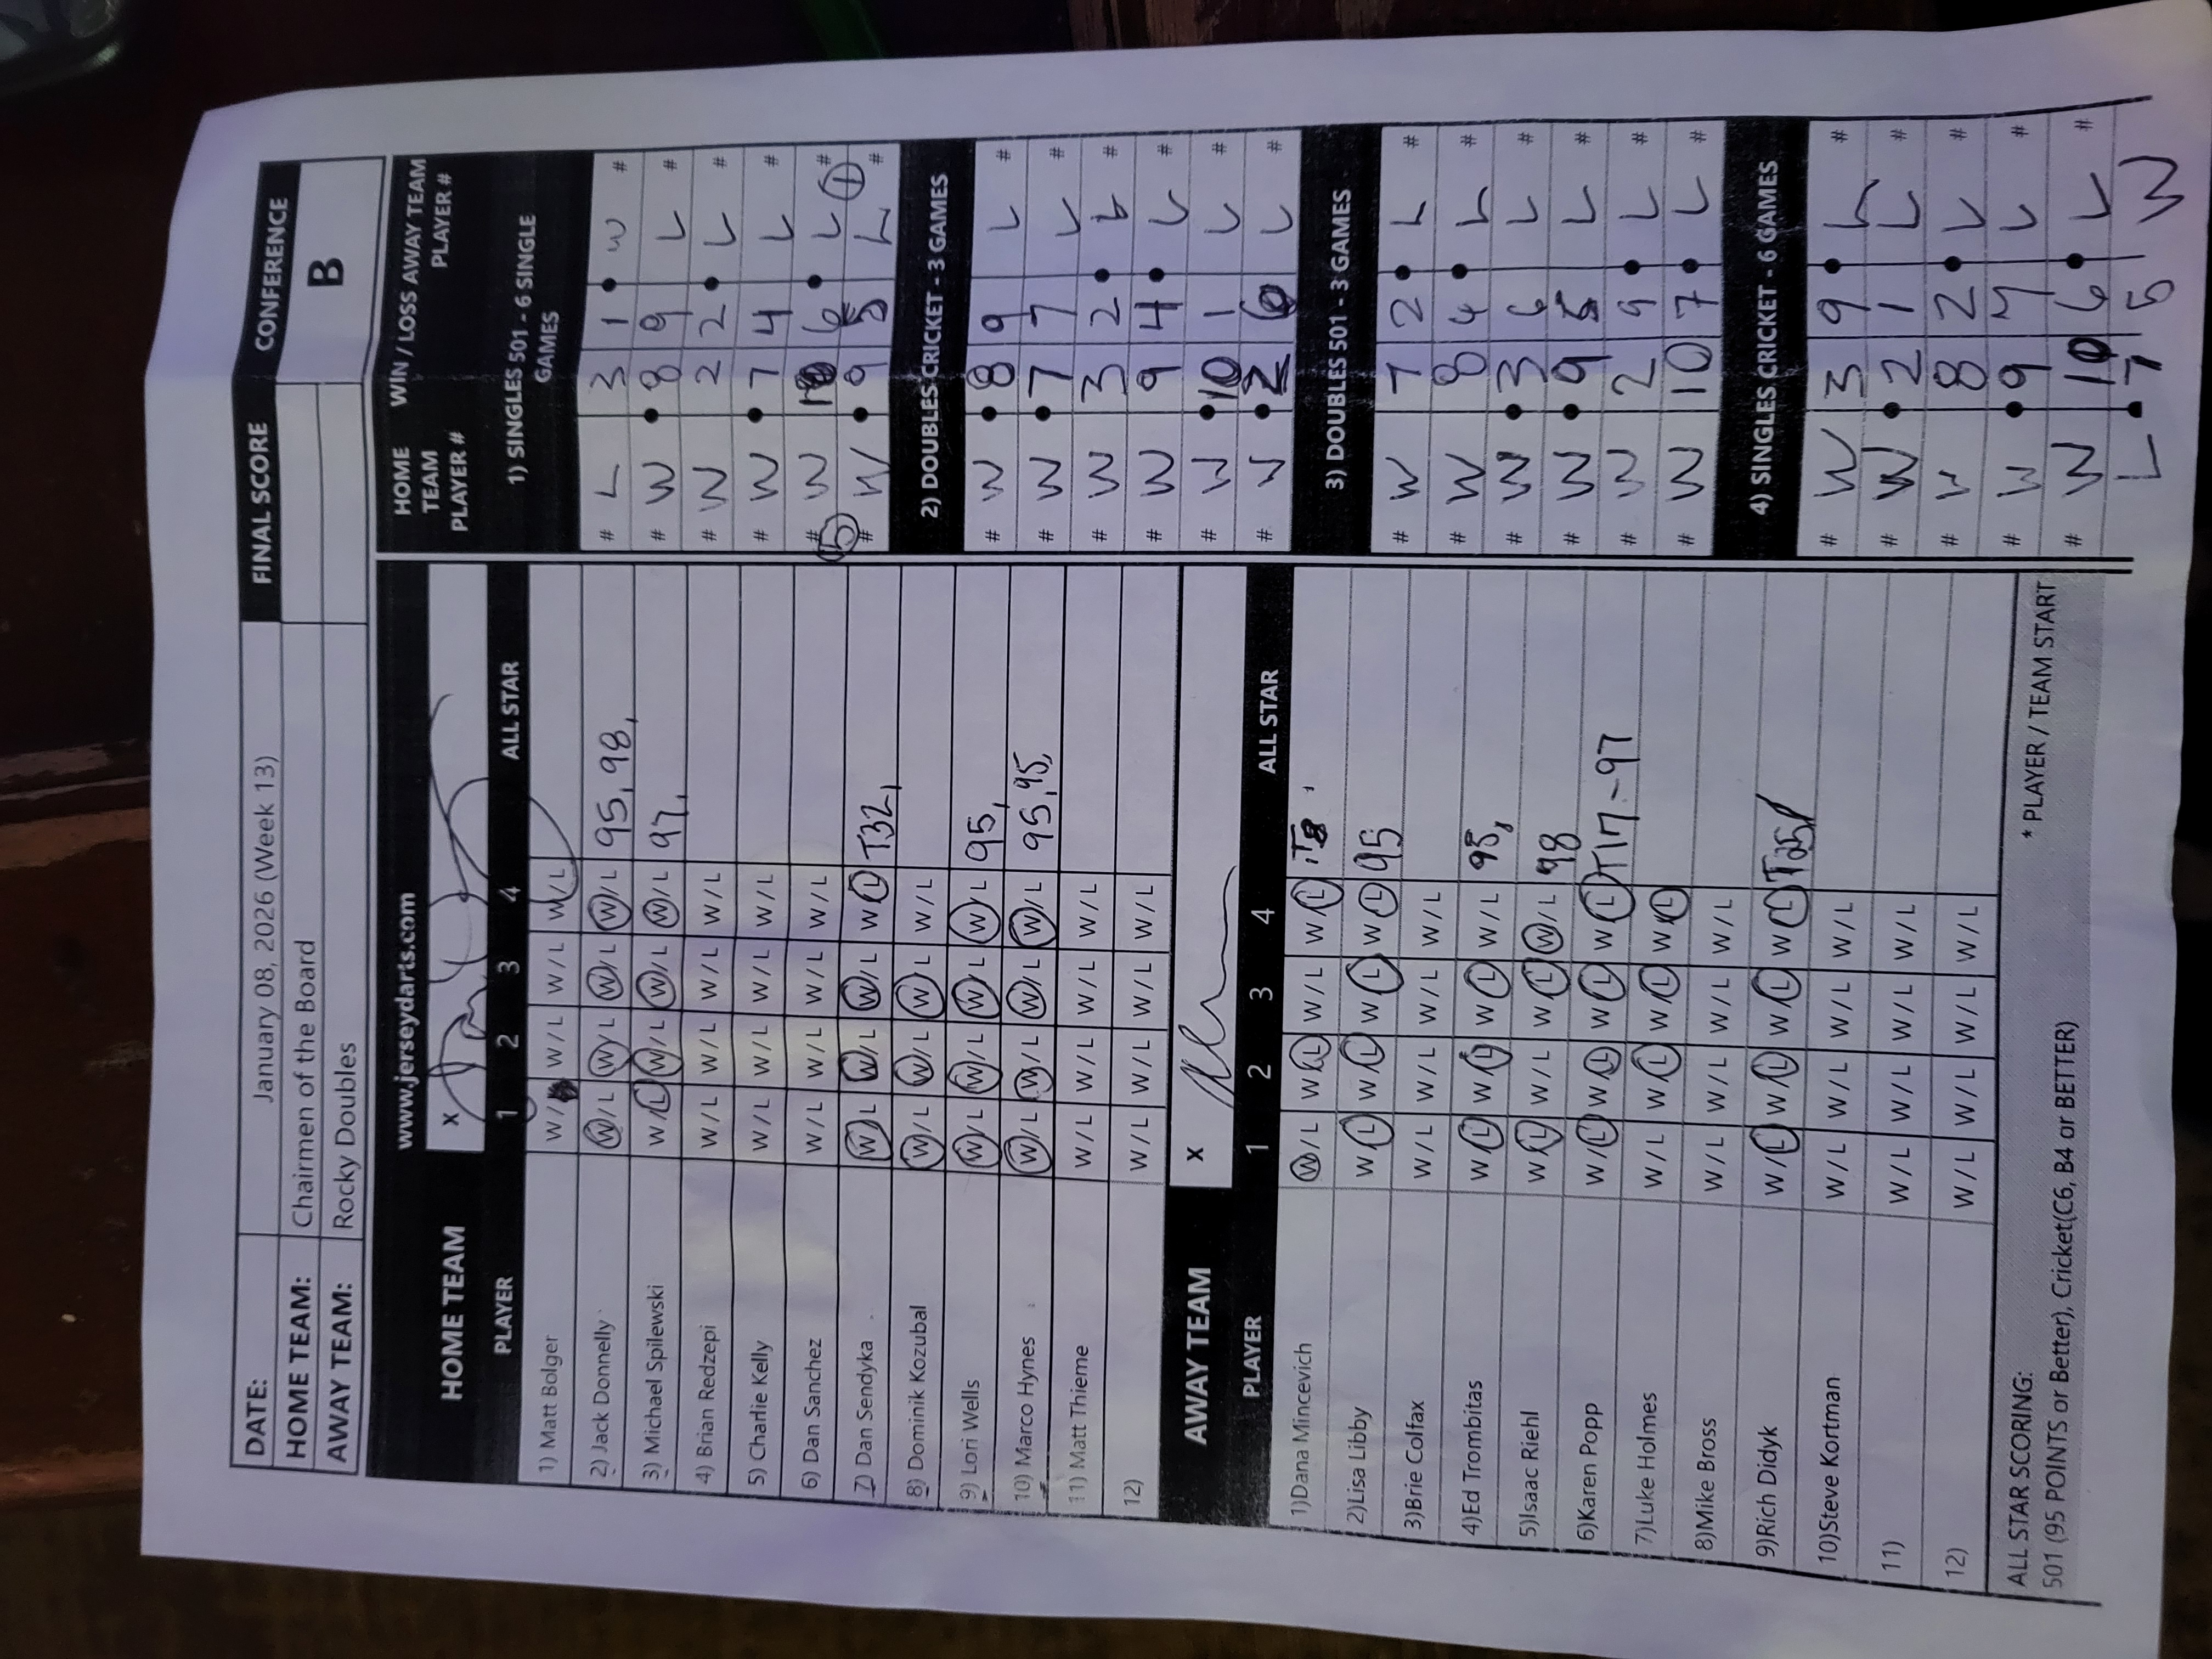 DATE: January 08, 2026 (Week 13) FINAL SCORE CONFERENCE
HOME TEAM: Chairmen of the Board B
AWAY TEAM: Rocky Doubles
www.jerseydarts.com
HOME TEAM X
PLAYER 1 2 3 4 ALL STAR
1) Matt Bolger W/ W/L W/L W/L
2) Jack Donnelly W/L W/L W/L W/L 95, 98,
3) Michael Spilewski W/L W/L W/L W/L 97,
4) Brian Redzepi W/L W/L W/L W/L
5) Charlie Kelly W/L W/L W/L W/L
6) Dan Sanchez W/L W/L W/L W/L
7) Dan Sendyka W/L W/L W/L W/L T32,
8) Dominik Kozubal W/L W/L W/L W/L
9) Lori Wells W/L W/L W/L W/L 95,
10) Marco Hynes W/L W/L W/L W/L 95, 95,
11) Matt Thieme W/L W/L W/L W/L
12) W/L W/L W/L W/L
AWAY TEAM X
PLAYER 1 2 3 4 ALL STAR
1)Dana Mincevich W/L W/L W/L W/L
2)Lisa Libby W/L W/L W/L W/L 95
3)Brie Colfax W/L W/L W/L W/L
4)Ed Trombitas W/L W/L W/L W/L
5)Isaac Riehl W/L W/L W/L W/L 98
6)Karen Popp W/L W/L W/L W/L T17-97
7)Luke Holmes W/L W/L W/L W/L
8)Mike Bross W/L W/L W/L W/L
9)Rich Didyk W/L W/L W/L W/L T25
10)Steve Kortman W/L W/L W/L W/L
11) W/L W/L W/L W/L
12) W/L W/L W/L W/L
ALL STAR SCORING: * PLAYER / TEAM START
501 (95 POINTS or Better), Cricket(C6, B4 or BETTER)
HOME TEAM PLAYER # WIN / LOSS AWAY TEAM PLAYER #
1) SINGLES 501 - 6 SINGLE GAMES
# L 3 1 W #
# W 8 9 L #
# W 2 2 L #
# W 7 4 L #
# W 10 6 L #
5 1
# W 9 5 L #
2) DOUBLES CRICKET - 3 GAMES
# W 8 9 L #
# W 7 7 L #
# W 3 2 L #
# W 9 4 L #
# W 10 1 L #
# W 2 6 L #
3) DOUBLES 501 - 3 GAMES
# W 7 2 L #
# W 8 4 L #
# W 3 6 L #
# W 9 5 L #
# W 2 9 L #
# W 10 7 L #
4) SINGLES CRICKET - 6 GAMES
# W 3 9 L #
# W 2 1 L #
# W 8 2 L #
# W 9 7 L #
# W 10 6 L #
L 7 5 W